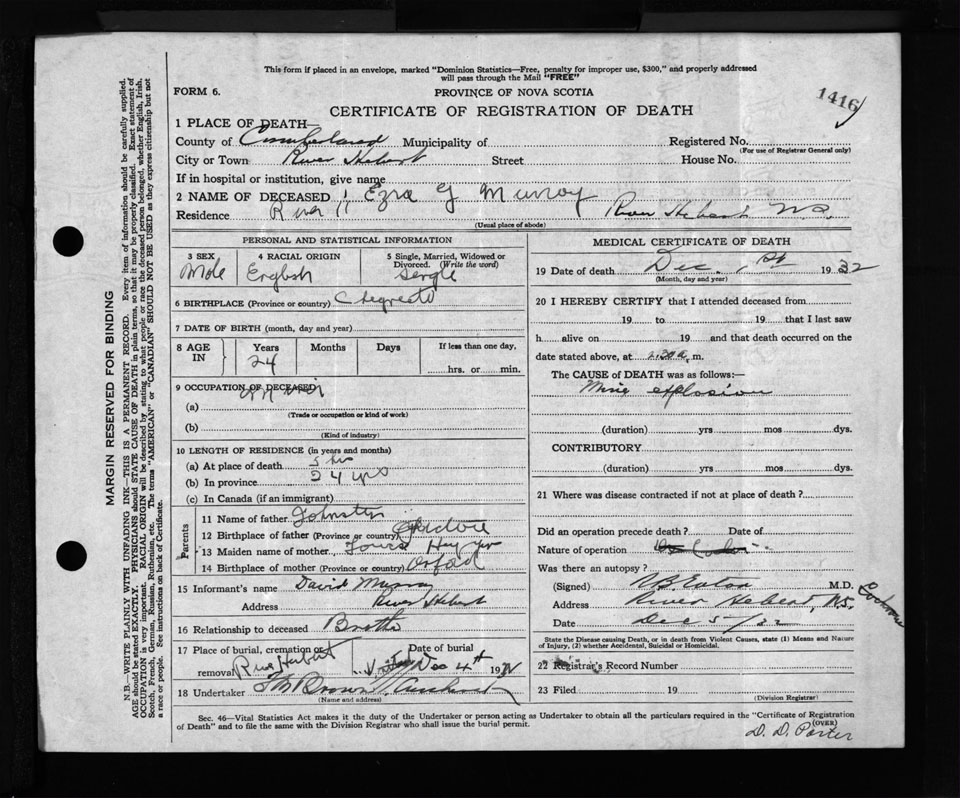 This form if placed in an envelope, marked "Dominion Statistics—Free, penalty for improper use, $300," and properly addressed
will pass through the Mail "FREE"
FORM 6.
PROVINCE OF NOVA SCOTIA
1416
CERTIFICATE OF REGISTRATION OF DEATH
1 PLACE OF DEATH—
County of Cumberland Municipality of Registered No.
(For use of Registrar General only)
City or Town River Hebert Street House No.
If in hospital or institution, give name
2 NAME OF DECEASED Ezra G Murray
Residence River River Hebert N.S.
(Usual place of abode)
PERSONAL AND STATISTICAL INFORMATION
3 SEX 4 RACIAL ORIGIN 5 Single, Married, Widowed or
Divorced. (Write the word)
Male English Single
6 BIRTHPLACE (Province or country)
7 DATE OF BIRTH (month, day and year)
8 AGE IN Years Months Days If less than one day,
24 hrs. or min.
9 OCCUPATION OF DECEASED
(a)
(Trade or occupation or kind of work)
(b)
(Kind of industry)
10 LENGTH OF RESIDENCE (in years and months)
(a) At place of death 5 hrs
(b) In province 24 yrs
(c) In Canada (if an immigrant)
Parents
11 Name of father Johnston
12 Birthplace of father (Province or country)
13 Maiden name of mother
14 Birthplace of mother (Province or country) Oxford
15 Informant's name David Murray
Address River Hebert
16 Relationship to deceased Brother
17 Place of burial, cremation or Date of burial
removal River Hebert Dec 4th 19
18 Undertaker Brown
(Name and address)
MEDICAL CERTIFICATE OF DEATH
19 Date of death Dec. 1st 1932
(Month, day and year)
20 I HEREBY CERTIFY that I attended deceased from
19 to 19 that I last saw
h alive on 19 and that death occurred on the
date stated above, at m.
The CAUSE of DEATH was as follows:—
Mine explosion
(duration) yrs mos dys.
CONTRIBUTORY
(duration) yrs mos dys.
21 Where was disease contracted if not at place of death?
Did an operation precede death? Date of
Nature of operation
Was there an autopsy?
(Signed) Eaton M.D.
Address River Hebert, N.S.
Date Dec 5/32
State the Disease causing Death, or in death from Violent Causes, state (1) Means and Nature
of Injury, (2) whether Accidental, Suicidal or Homicidal.
22 Registrar's Record Number
23 Filed 19
(Division Registrar)
Sec. 46—Vital Statistics Act makes it the duty of the Undertaker or person acting as Undertaker to obtain all the particulars required in the "Certificate of Registration
of Death" and to file the same with the Division Registrar who shall issue the burial permit.
(OVER)
D. D. Porter
MARGIN RESERVED FOR BINDING
N.B.—WRITE PLAINLY WITH UNFADING INK—THIS IS A PERMANENT RECORD. Every item of information should be carefully supplied.
AGE should be stated EXACTLY. PHYSICIANS should STATE CAUSE OF DEATH in plain terms, so that it may be properly classified. Exact statement of
OCCUPATION is very important. RACIAL ORIGIN will be described by stating to what people or race the deceased person belonged, whether English, Irish,
Scotch, French, German, Russian, Ruthenian, etc. The terms "AMERICAN" or "CANADIAN" SHOULD NOT BE USED as they express citizenship but not
a race or people. See instructions on back of Certificate.